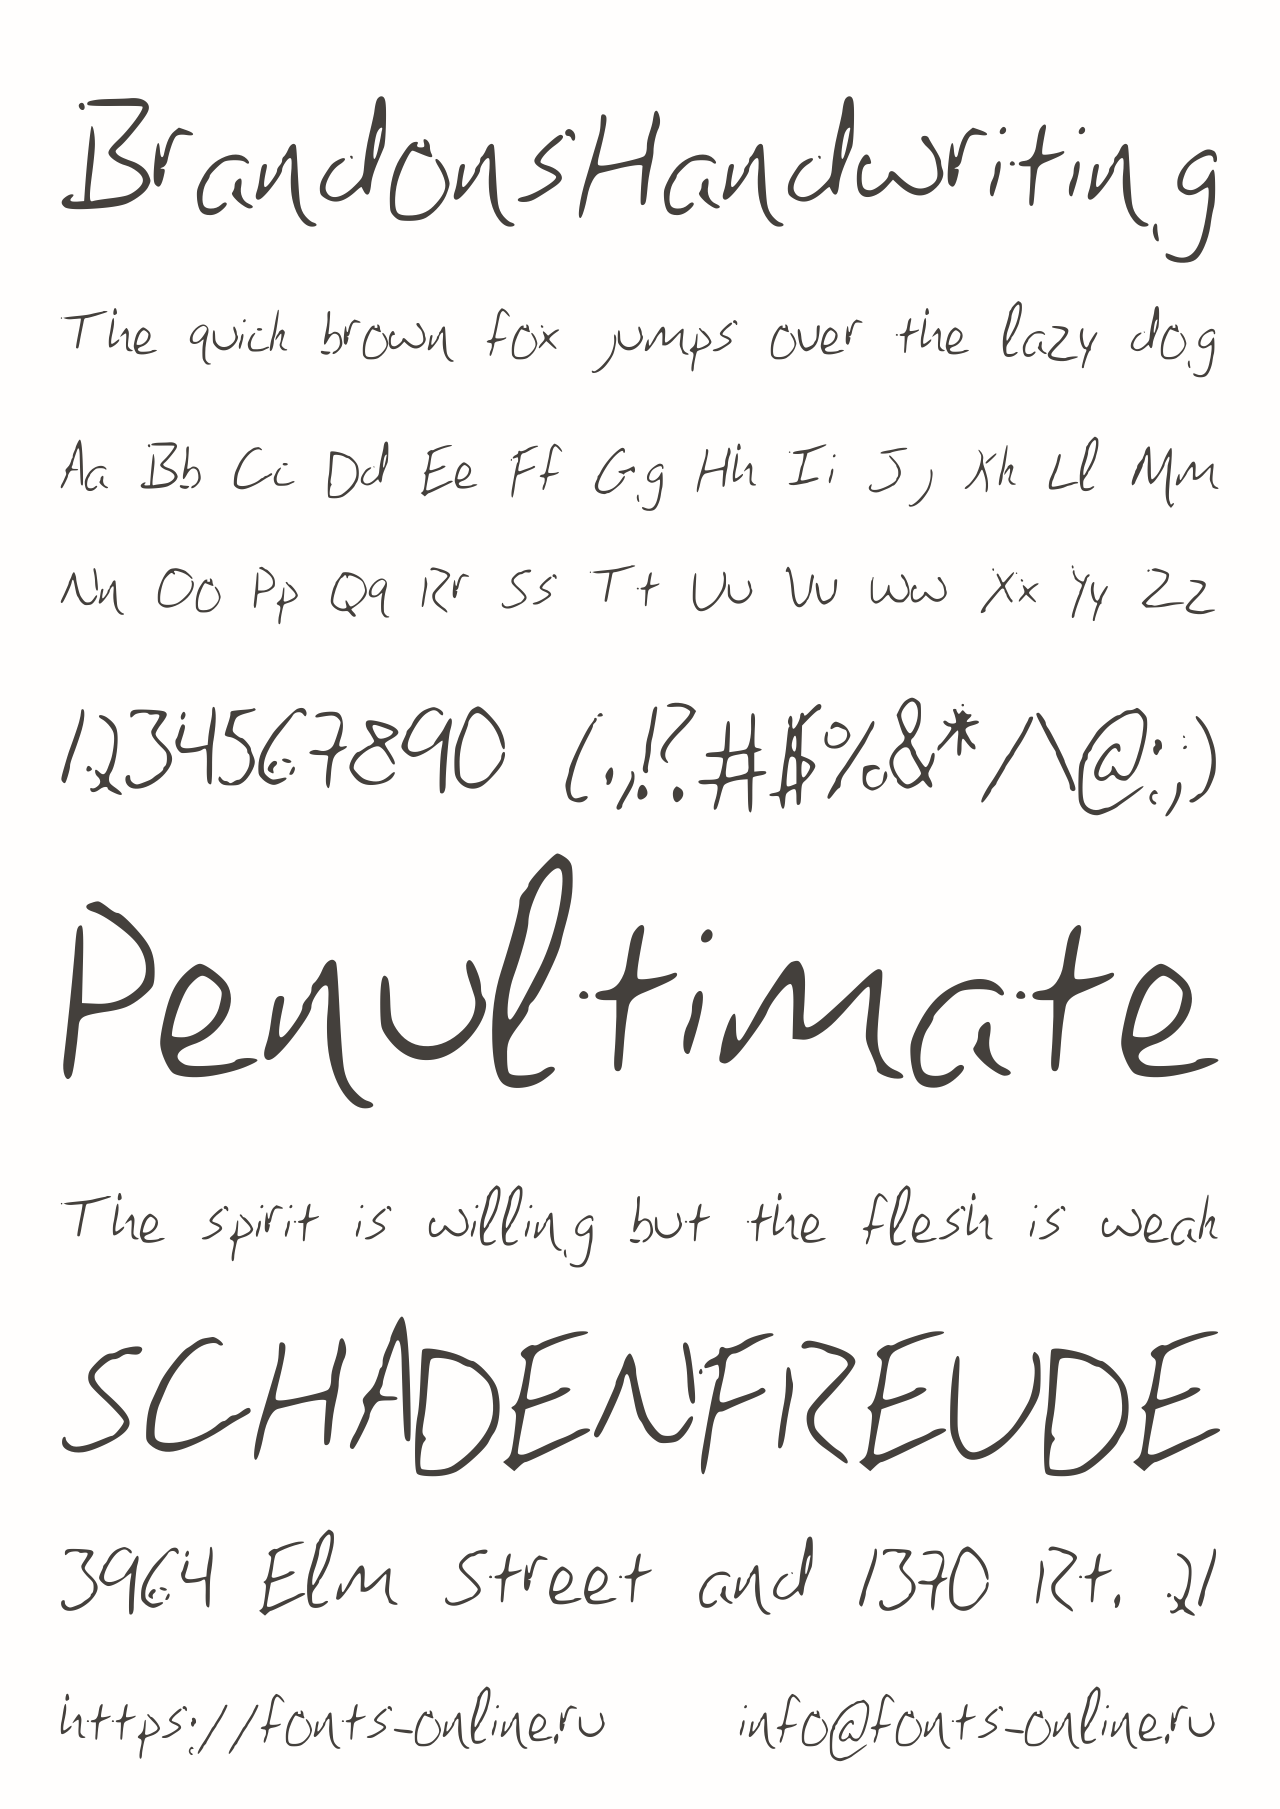 BrandonsHandwriting
The quick brown fox jumps over the lazy dog
Aa Bb Cc Dd Ee Ff Gg Hh Ii Jj Kk Ll Mm
Nn Oo Pp Qq Rr Ss Tt Uu Vv Ww Xx Yy Zz
1234567890 (.,!?#$%&*/\@:;)
Penultimate
The spirit is willing but the flesh is weak
SCHADENFREUDE
3964 Elm Street and 1370 Rt. 21
https://fonts-online.ru info@fonts-online.ru